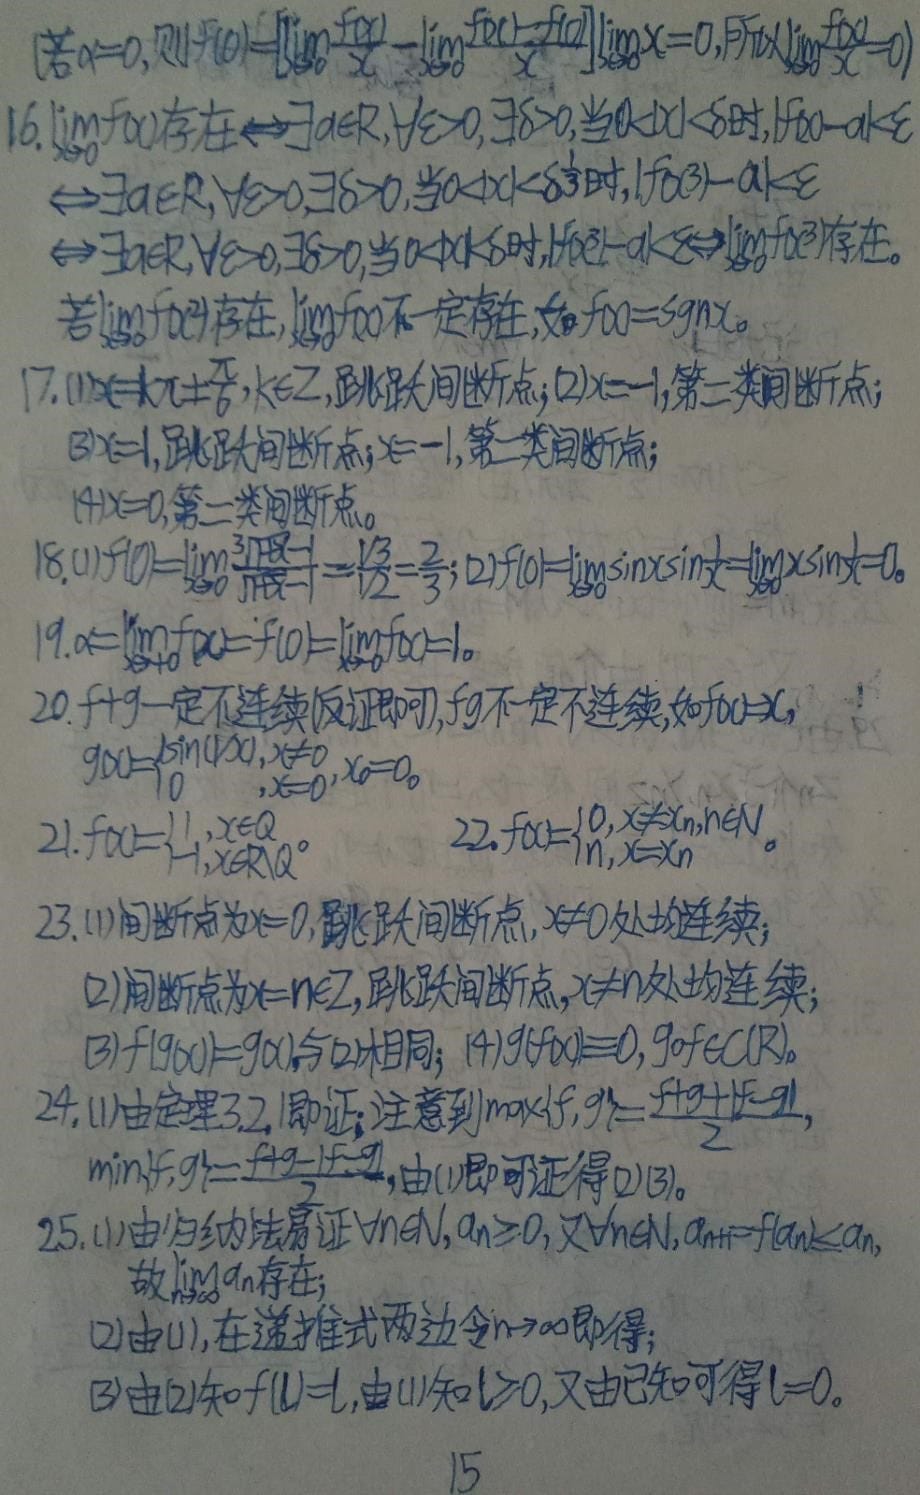 (若α=0,则f(0)=[lim_{x→0} f(x)/x - lim_{x→0} (f(x)-f(0))/x] lim_{x→0} x=0,所以lim_{x→0} f(x)/x=0)
16. lim_{x→0} f(x)存在⇔∃a∈R,∀ε>0,∃δ>0,当0<|x|<δ时,|f(x)-a|<ε
⇔∃a∈R,∀ε>0,∃δ>0,当0<|x|<δ^{1/3}时,|f(x³)-a|<ε
⇔∃a∈R,∀ε>0,∃δ>0,当0<|x|<δ时,|f(x³)-a|<ε⇔lim_{x→0} f(x³)存在。
若lim_{x→0} f(x²)存在,lim_{x→0} f(x)不一定存在,如f(x)=sgnx。
17.(1)x=kπ±π/6,k∈Z,跳跃间断点;(2)x=-1,第二类间断点;
(3)x=1,跳跃间断点;x=-1,第二类间断点;
(4)x=0,第二类间断点。
18.(1)f(0)=lim_{x→0} (∛(1+x)-1)/(√(1+x)-1)=(1/3)/(1/2)=2/3;(2)f(0)=lim_{x→0} sinxsin1/x=lim_{x→0} xsin1/x=0。
19.α=lim_{x→+0} f(x)=f(0)=lim_{x→-0} f(x)=1。
20. f+g一定不连续(反证即可),fg不一定不连续,如f(x)=x,
g(x)={sin(1/x),x≠0
0 ,x=0,x₀=0。
21.f(x)={1,x∈Q
-1,x∈R\Q。
22.f(x)={0,x≠xn,n∈N
n,x=xn。
23.(1)间断点为x=0,跳跃间断点,x≠0处均连续;
(2)间断点为x=n∈Z,跳跃间断点,x≠n处均连续;
(3)f(g(x))=g(x),与(2)相同;(4)g(f(x))≡0,g∘f∈C(R)。
24.(1)由定理3.2.1即证;注意到max{f,g}=(f+g+|f-g|)/2,
min{f,g}=(f+g-|f-g|)/2,由(1)即可证得(2)(3)。
25.(1)由归纳法易证∀n∈N,an≥0,又∀n∈N,an+1=f(an)≤an,
故lim_{n→∞} an存在;
(2)由(1),在递推式两边令n→∞即得;
(3)由(2)知f(l)=l,由(1)知l≥0,又由已知可得l=0。
15